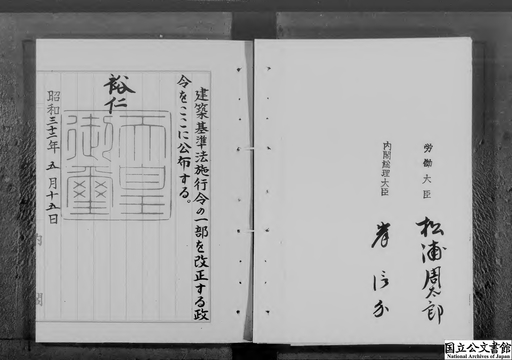 労働大臣 松浦周太郎
内閣総理大臣 岸信介
建築基準法施行令の一部を改正する政
令をここに公布する。
裕仁
天皇御璽
昭和三十二年五月十五日
内閣
国立公文書館
National Archives of Japan